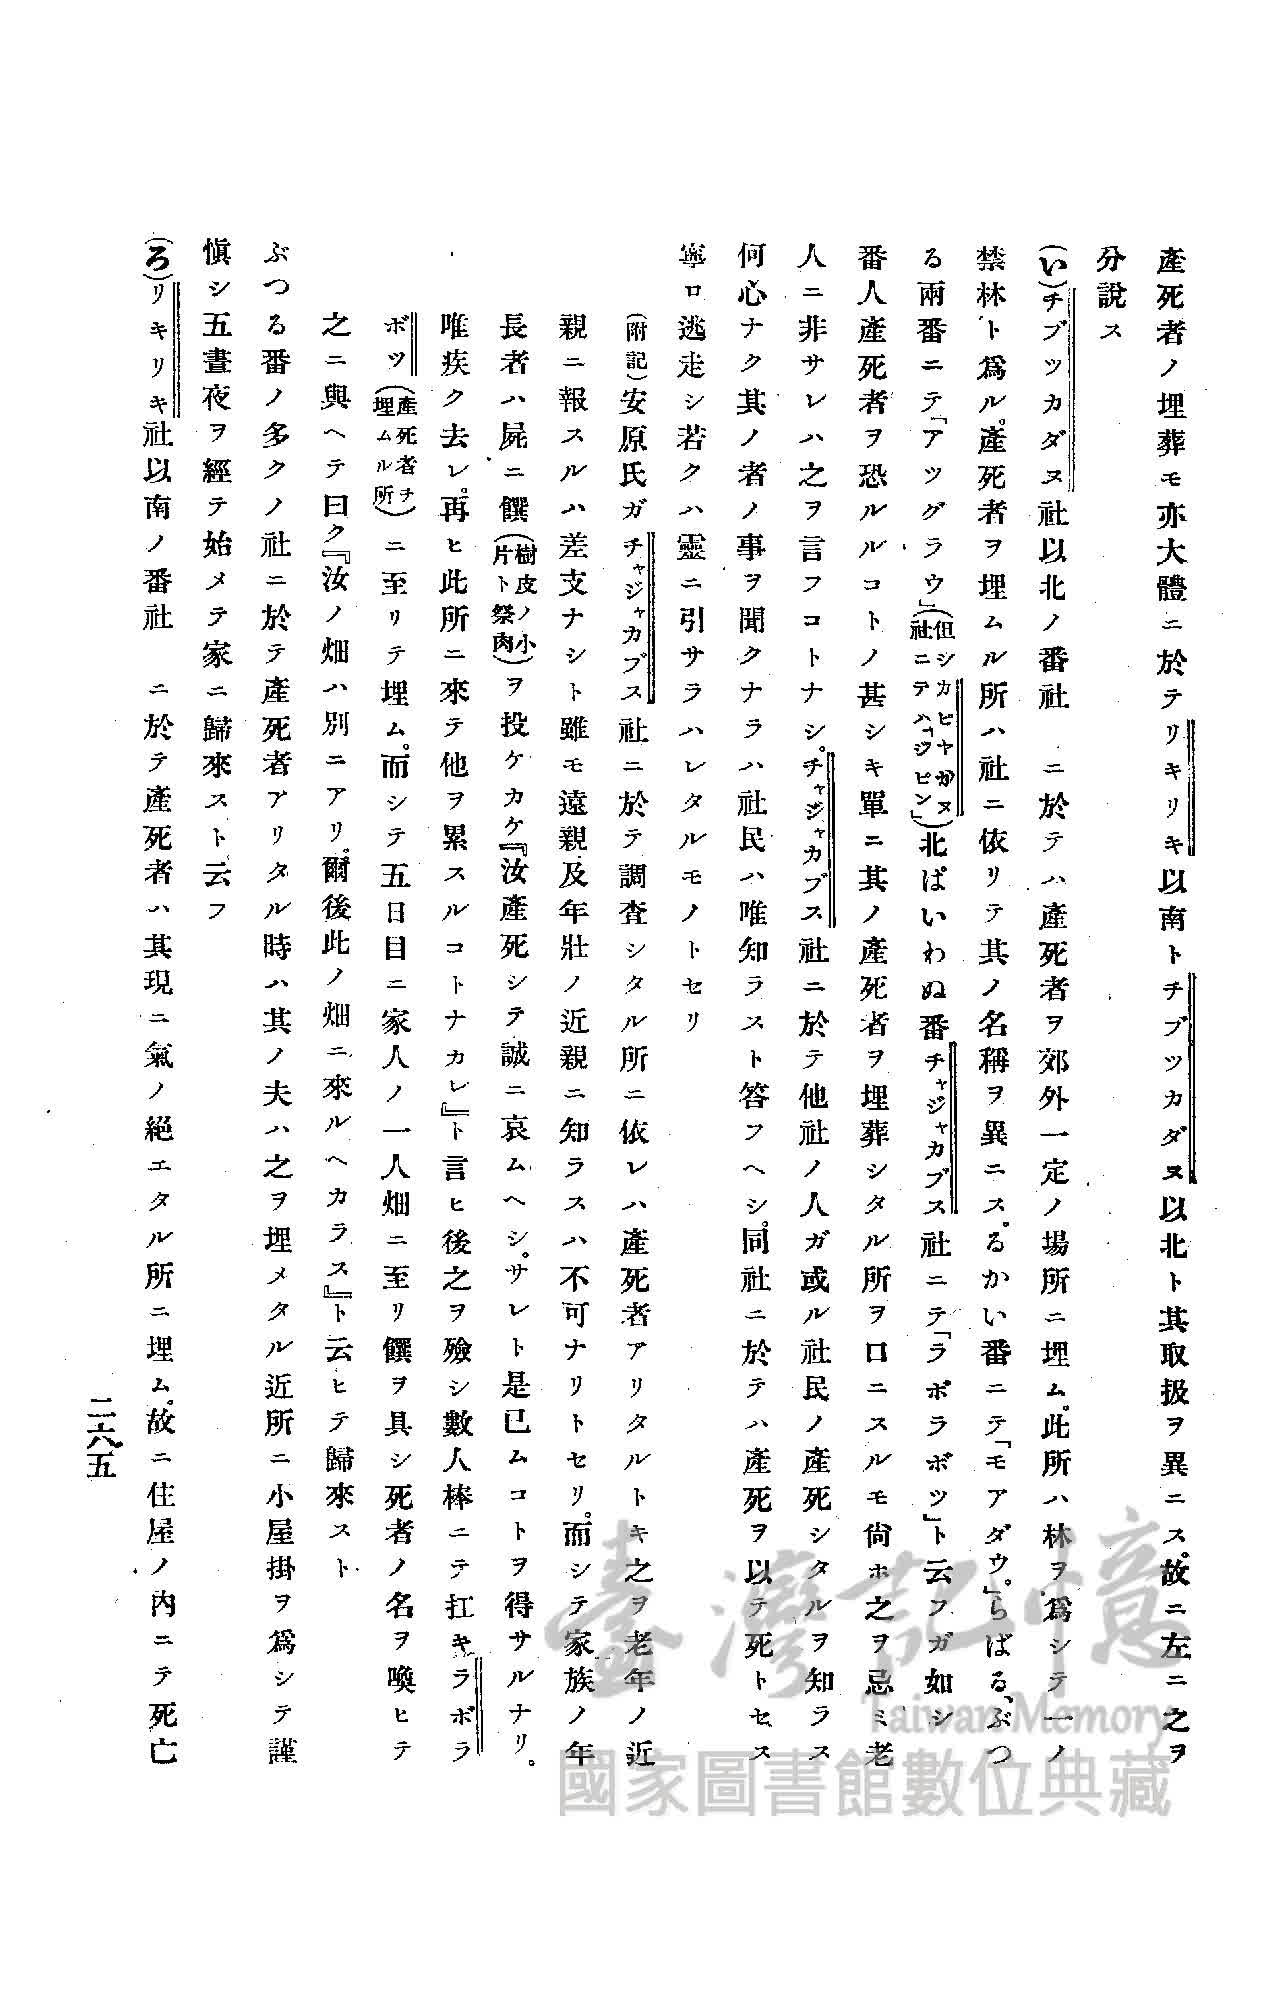 產死者ノ埋葬モ亦大體ニ於テリキリキ以南トチブッカダヌ以北ト其取扱ヲ異ニス。故ニ左ニ之ヲ
分說ス
(い)チブッカダヌ社以北ノ番社　ニ於テハ產死者ヲ郊外一定ノ場所ニ埋ム。此所ハ林ヲ爲シテ一ノ
禁林ト爲ル。產死者ヲ埋ムル所ハ社ニ依リテ其ノ名稱ヲ異ニス。るかい番ニテ「モアダウ。」らばる、ぶつ
る兩番ニテ「アッグラウ」(但シカビヤガヌ社ニテハ「ジビン」)北ぱいわぬ番チャジャカブス社ニテ「ラボラボツ」ト云フガ如シ
番人產死者ヲ恐ルルコトノ甚シキ單ニ其ノ產死者ヲ埋葬シタル所ヲ口ニスルモ尙ホ之ヲ忌ミ老
人ニ非サレハ之ヲ言フコトナシ。チャジャカブス社ニ於テ他社ノ人ガ或ル社民ノ產死シタルヲ知ラス
何心ナク其ノ者ノ事ヲ聞クナラハ社民ハ唯知ラスト答フヘシ。同社ニ於テハ產死ヲ以テ死トセス
寧ロ逃走シ若クハ靈ニ引サラハレタルモノトセリ
(附記)安原氏ガチャジャカブス社ニ於テ調査シタル所ニ依レハ產死者アリタルトキ之ヲ老年ノ近
親ニ報スルハ差支ナシト雖モ遠親及年壯ノ近親ニ知ラスハ不可ナリトセリ。而シテ家族ノ年
長者ハ屍ニ饌(樹皮ノ小片ト祭肉)ヲ投ケカケ『汝產死シテ誠ニ哀ムヘシ。サレト是已ムコトヲ得サルナリ。
唯疾ク去レ。再ヒ此所ニ來テ他ヲ累スルコトナカレ』ト言ヒ後之ヲ殮シ數人棒ニテ扛キラボラ
ボツ(產死者ヲ埋ムル所)ニ至リテ埋ム。而シテ五日目ニ家人ノ一人畑ニ至リ饌ヲ具シ死者ノ名ヲ喚ヒテ
之ニ與ヘテ曰ク『汝ノ畑ハ別ニアリ。爾後此ノ畑ニ來ルヘカラス』ト云ヒテ歸來スト
ぶつる番ノ多クノ社ニ於テ產死者アリタル時ハ其ノ夫ハ之ヲ埋メタル近所ニ小屋掛ヲ爲シテ謹
愼シ五晝夜ヲ經テ始メテ家ニ歸來スト云フ
(ろ)リキリキ社以南ノ番社　ニ於テ產死者ハ其現ニ氣ノ絕エタル所ニ埋ム。故ニ住屋ノ內ニテ死亡
二六五
臺灣記憶
Taiwan Memory
國家圖書館數位典藏